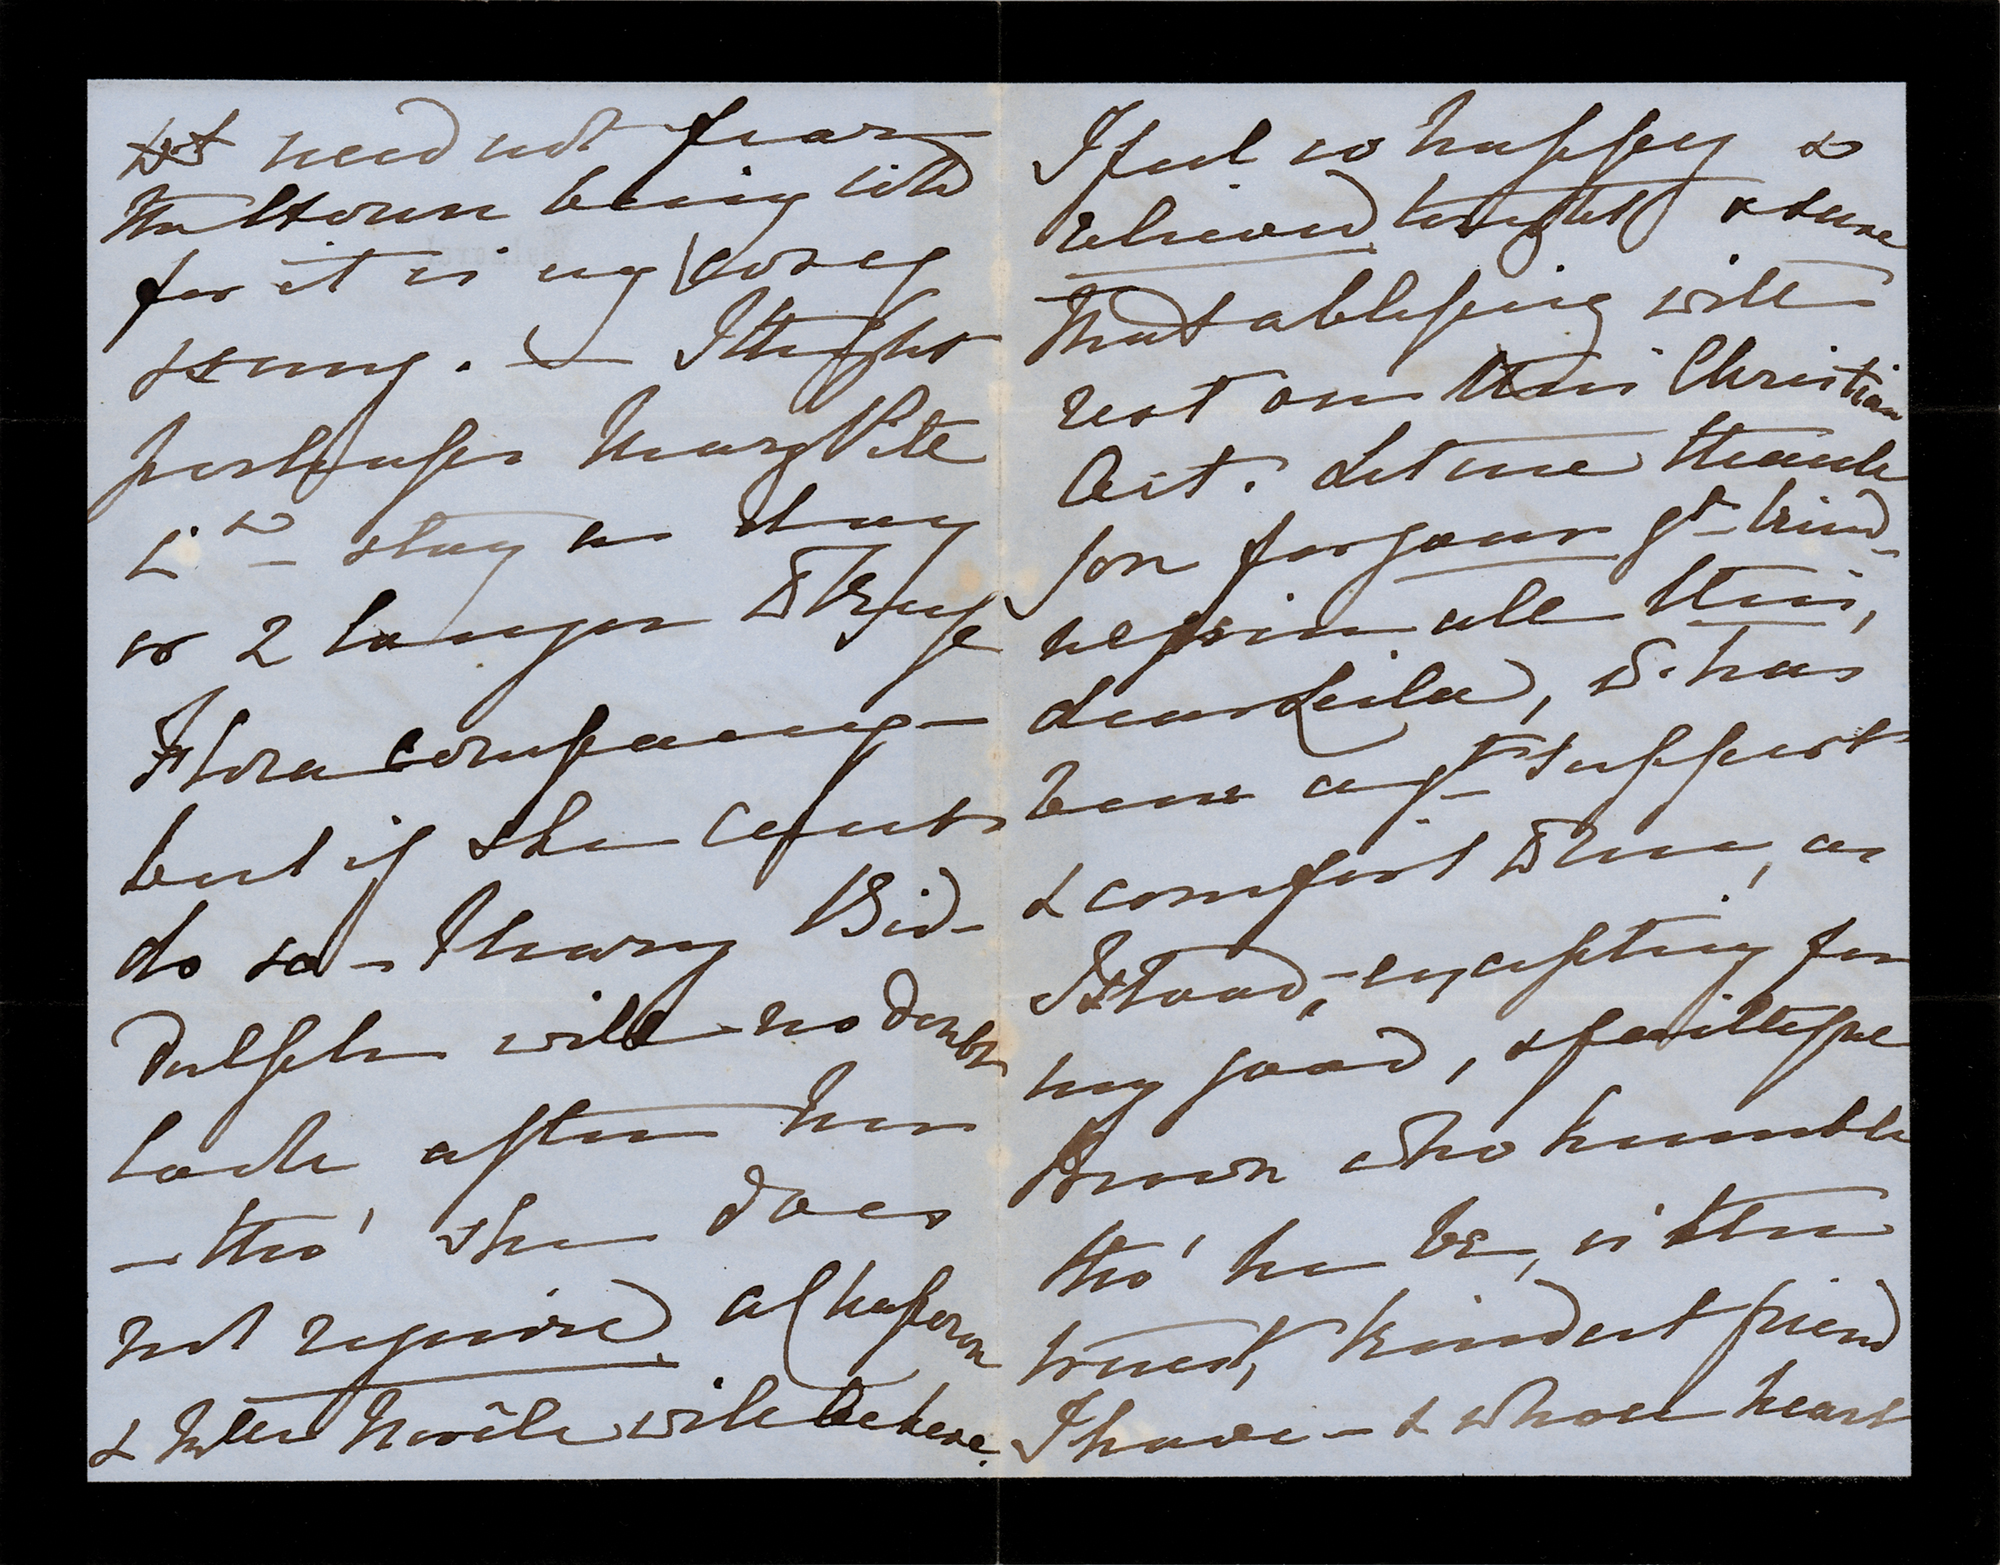 need not fear
Maltown being cold
for it is very cosey
& snug. — I thought
perhaps Mary Pitt
c.ld stay a day
or 2 longer to keep
Flora company —
but if she can't
do so — Mary Bid-
dulph will no doubt
look after her
— tho' she does
not require a Chaperon
& Mlle Norèle will be here.
I feel so happy &
relieved tonight & sure
that a blessing will
rest on this Christian
Act. Let me thank
you for your gt kind-
ness in all this,
dear Leila, it has
been a gt support
& comfort to me, as
I stood, — excepting for
my good, & faithful
Brown who humble
tho' he be, is the
truest, kindest friend
I have — & whose heart